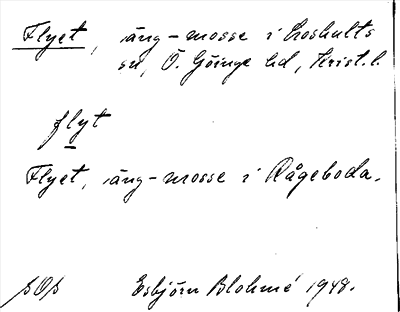 Flyet, äng-mosse i Loshults
sn, Ö. Göinge hd, Krist. l.
flyt
Flyet, äng-mosse i Rågeboda.
sOs Esbjörn Blohmé 1948.